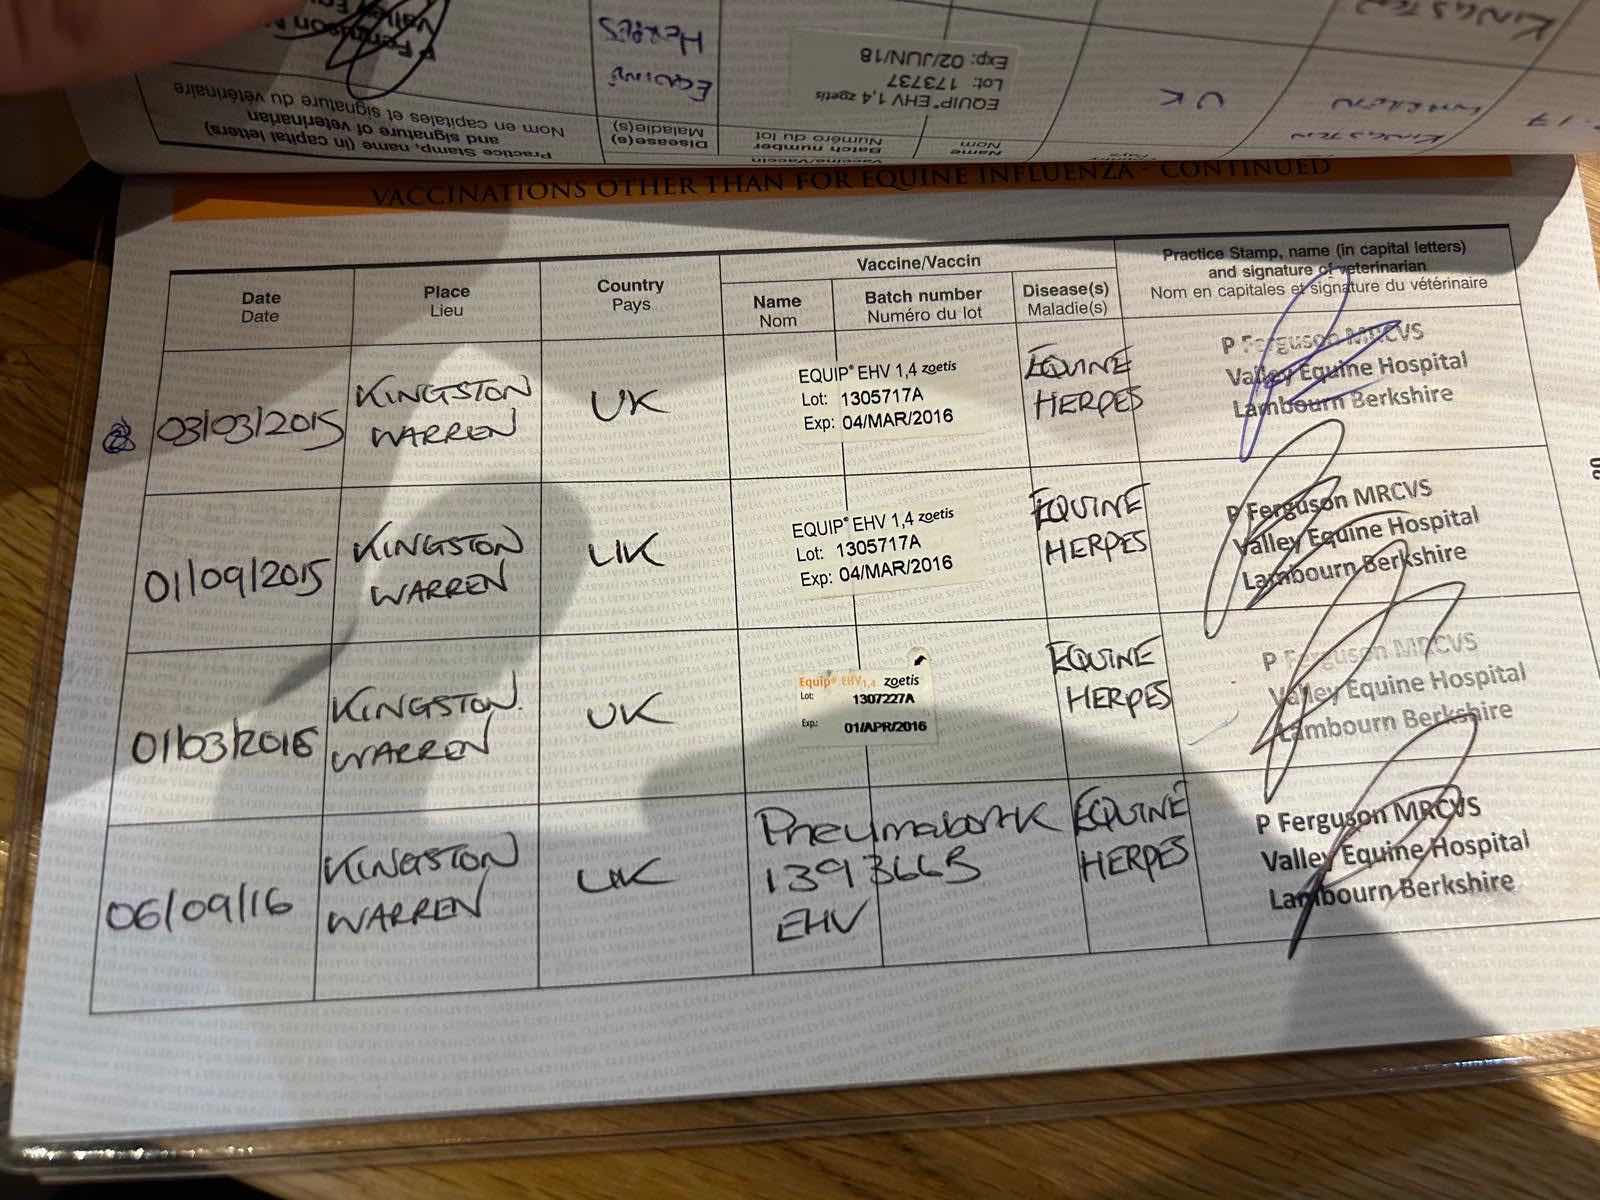 P Ferguson
EQUINE
HERPES
EQUIP® EHV 1,4 zoetis
Lot: 173737
Exp: 02/JUN/18
UK
KINGSTON
Practice Stamp, name (in capital letters)
and signature of veterinarian
Nom en capitales et signature du vétérinaire
Disease(s)
Maladie(s)
Batch number
Numéro du lot
Name
Nom
VACCINATIONS OTHER THAN FOR EQUINE INFLUENZA - CONTINUED
Date
Date
Place
Lieu
Country
Pays
Vaccine/Vaccin
Name
Nom
Batch number
Numéro du lot
Disease(s)
Maladie(s)
Practice Stamp, name (in capital letters)
and signature of veterinarian
Nom en capitales et signature du vétérinaire
03/03/2015
KINGSTON
WARREN
UK
EQUIP® EHV 1,4 zoetis
Lot: 1305717A
Exp: 04/MAR/2016
EQUINE
HERPES
P Ferguson MRCVS
Valley Equine Hospital
Lambourn Berkshire
01/09/2015
KINGSTON
WARREN
UK
EQUIP® EHV 1,4 zoetis
Lot: 1305717A
Exp: 04/MAR/2016
EQUINE
HERPES
P Ferguson MRCVS
Valley Equine Hospital
Lambourn Berkshire
01/03/2016
KINGSTON
WARREN
UK
Equip® EHV1,4 zoetis
Lot: 1307227A
Exp: 01/APR/2016
EQUINE
HERPES
P Ferguson MRCVS
Valley Equine Hospital
Lambourn Berkshire
06/09/16
KINGSTON
WARREN
UK
Pneumabort K
139366B
EHV
EQUINE
HERPES
P Ferguson MRCVS
Valley Equine Hospital
Lambourn Berkshire